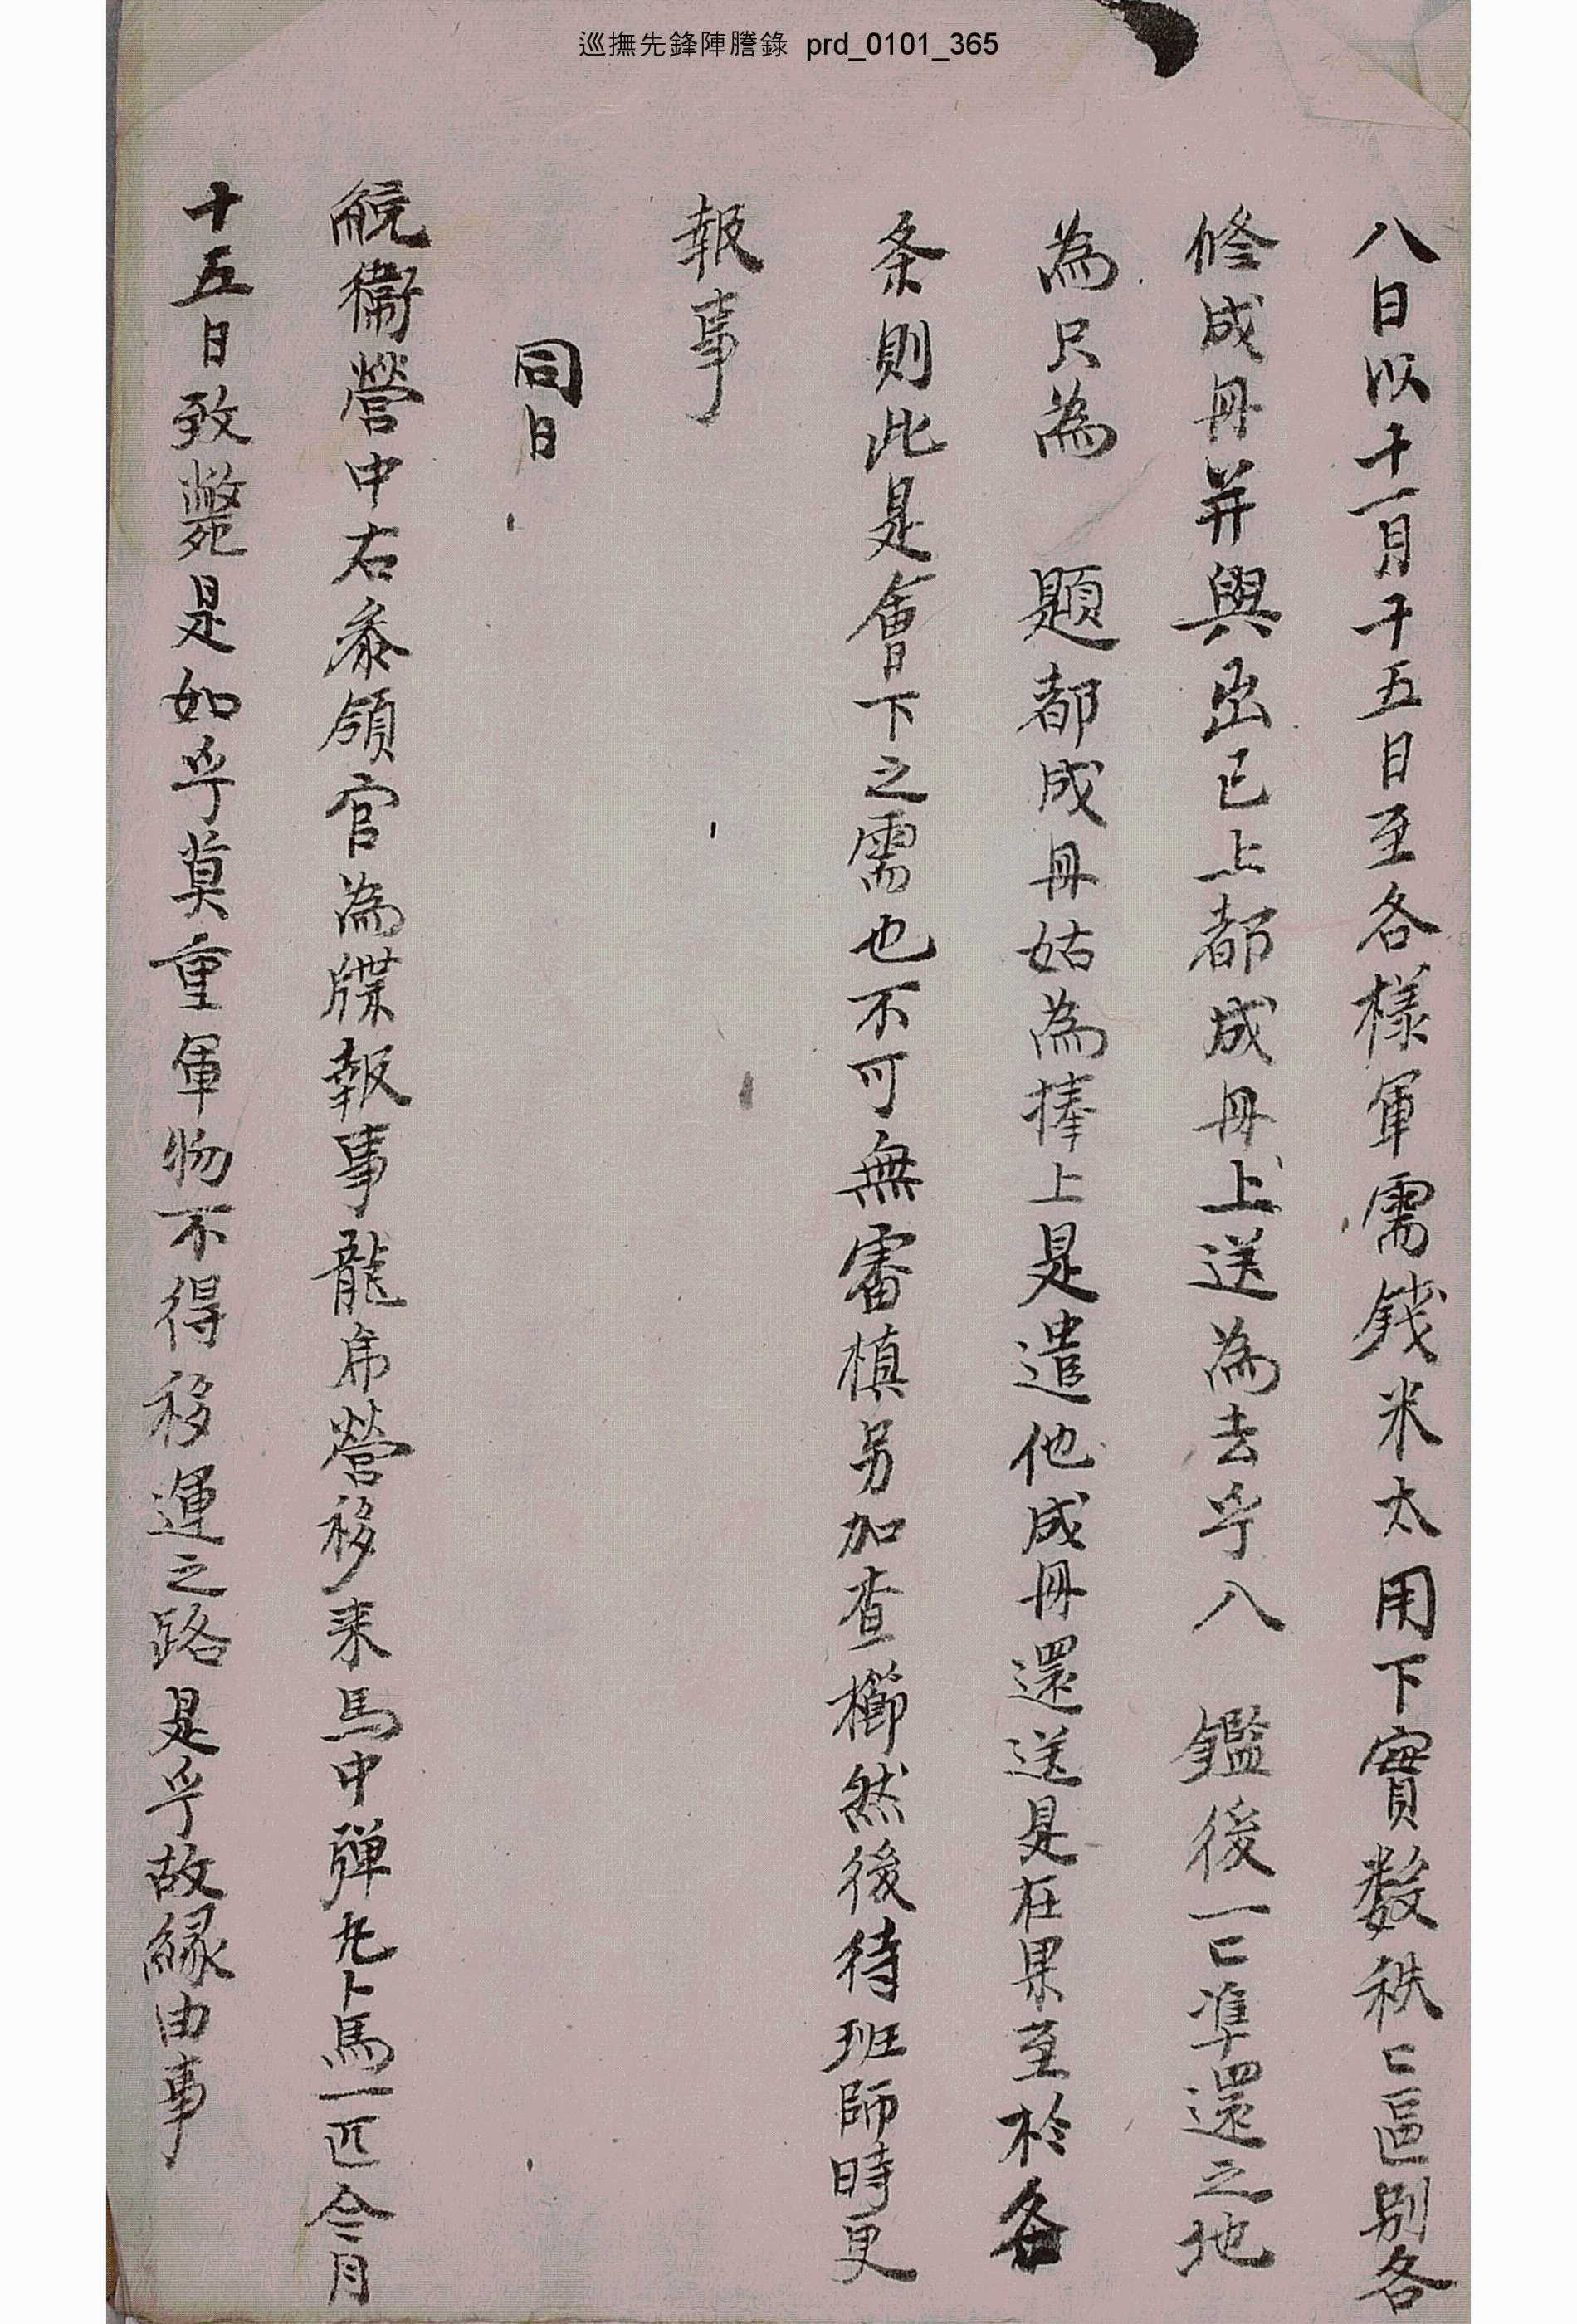 巡撫先鋒陣謄錄 prd_0101_365
八日以十一月十五日至各樣軍需錢米太用下實數秩〻區別各
修成冊并與出已上都成冊上送為去乎八 鑑後一〻準還之地
為只為 題都成冊姑為捧上是遣他成冊還送是在果至於各
条則此是會下之需也不可無審槙另加查櫛然後待班師時更
報事
同日
統衛營中右叅領官為牒報事龍席營移来馬中彈丸卜馬一匹今月
十五日致斃是如乎莫重軍物不得移運之路是乎故緣由事